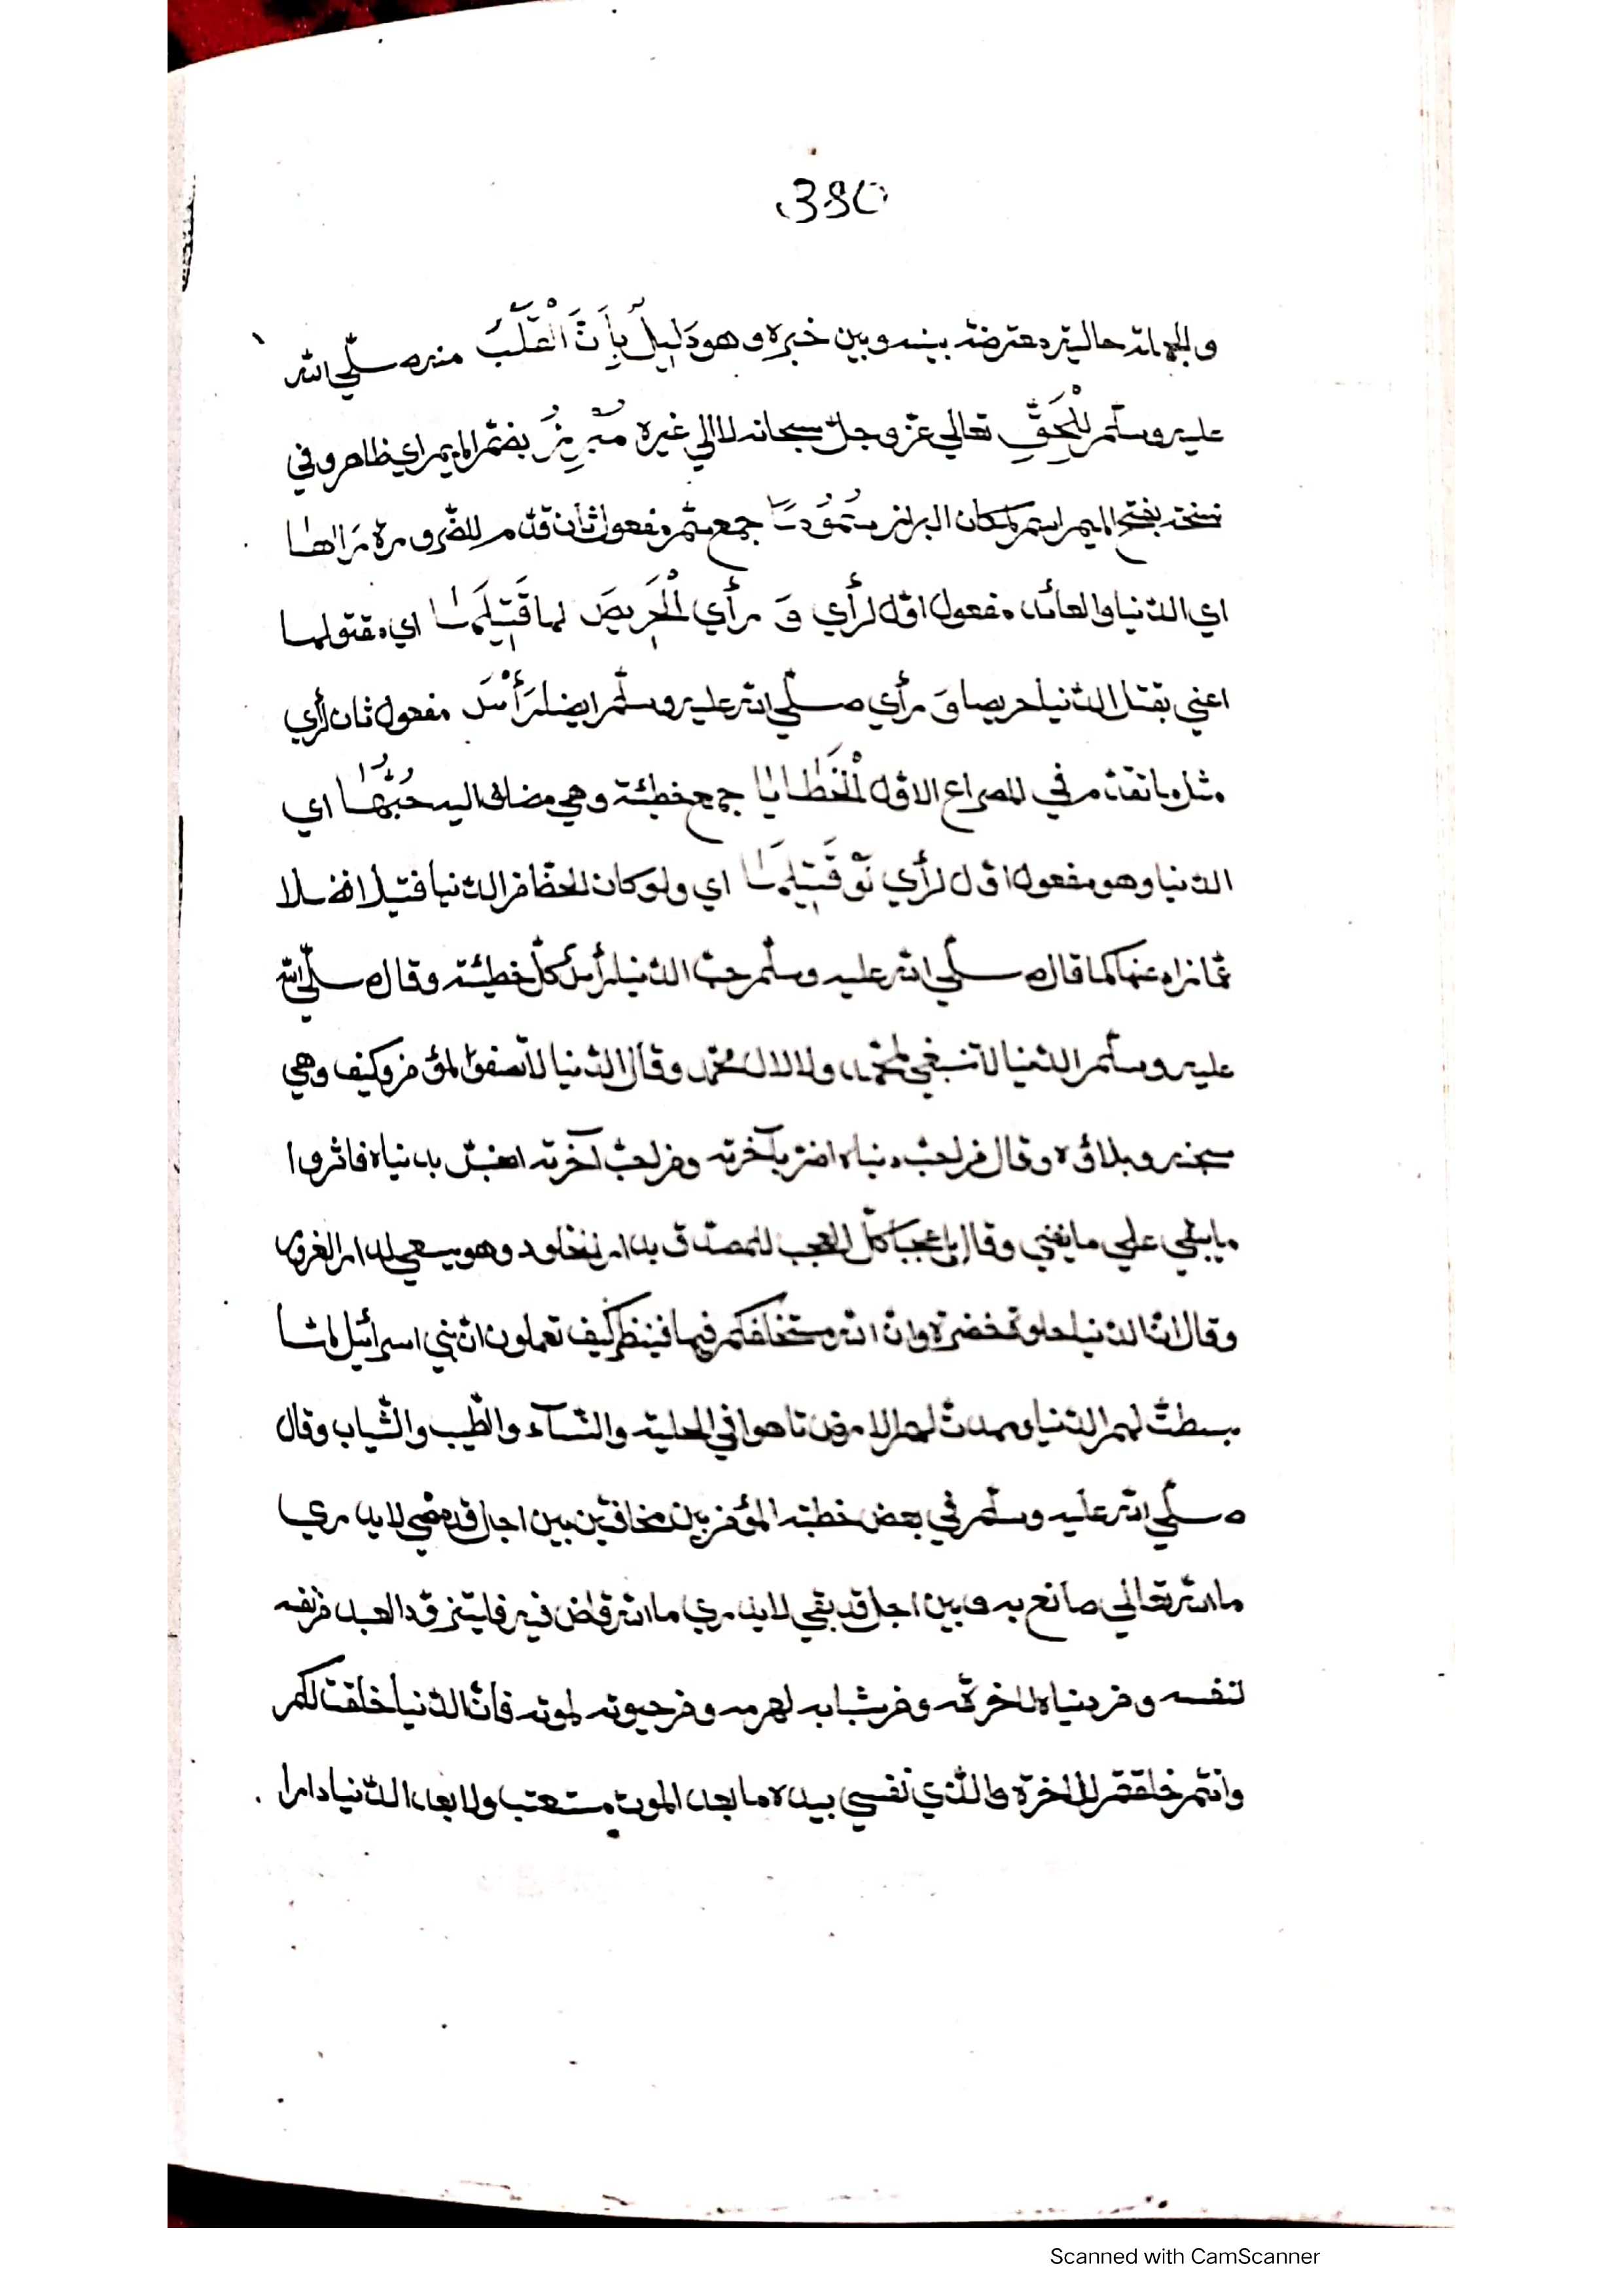 380
والجملة حالية معترضة بينه وبين خبره وهو دَلِيلٌ بِأَنَّ الْقَلْبَ منه صلّي الله
عليه وسلّم لِلْحَقِّ تعالي عزّ وجلّ سبحانه لا الي غيره مُبْرِزٌ بضمّ الميم اي ظاهر وفي
نسخة بفتح الميم اسم لمكان البراز سُمُومًا جمع سمّ مفعول ثان قدّم للضّرورة رَاٰهَا
اي الدّنيا والعائد مفعول اوّل لرأي وَ رأي الْحَرِيصَ لها قَتِيلَهَا اي مقتولها
اعني بقتل الدّنيا حريصا وَ رأي صلّي الله عليه وسلّم ايضا رَأْسَ مفعول ثان لرأي
مثل ما تقدّم في المصراع الاوّل الْخَطَايَا جمع خطئة وهي مضاف اليه حُبُّهَا اي
الدّنيا وهو مفعول اوّل لرأي قَتِيلَهَا اي ولو كان الحظّ من الدّنيا فتيلا فضلا
عمّا زاد عنها كما قال صلّي الله عليه وسلّم حبّ الدّنيا رأس كلّ خطيئة وقال صلّي الله
عليه وسلّم الدّنيا لا تنبغي لمحمّد ولا لال محمّد وقال الدّنيا لا تصفو لمؤمن وكيف وهي
سجنه وبلاؤه وقال من احبّ دنياه اضرّ بآخرته ومن احبّ آخرته اضرّ بدنياه فاثروا
ما يبقي علي ما يفني وقال يا عجبا كلّ العجب للمصدّق بدار الخلود وهو يسعي لدار الغرور
وقال انّ الدّنيا حلوة خضرة وانّ الله مستخلفكم فيها فينظر كيف تعملون انّ بني اسرائيل لمّا
بسطت لهم الدّنيا ومهدت لهم الارض تاهوا في الحلية والنّسآء والطّيب والثّياب وقال
صلّي الله عليه وسلّم في بعض خطبته المؤمن بين مخافتين بين اجل قد مضي لا يدري
ما الله تعالي صانع به وبين اجل قد بقي لا يدري ما الله قاض فيه فليتزوّد العبد من نفسه
لنفسه ومن دنياه لاخرته ومن شبابه لهرمه ومن حيوته لموته فانّ الدّنيا خلقت لكم
وانتم خلقتم للاخرة والّذي نفسي بيده ما بعد الموت مستعتب ولا بعد الدّنيا دارا
Scanned with CamScanner